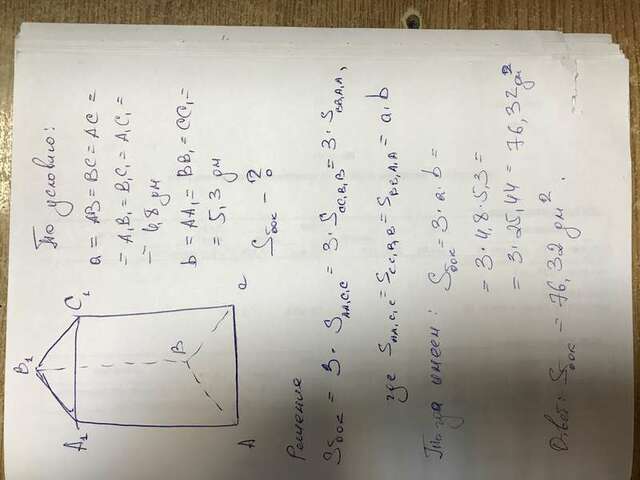 B₁
A₁ C₁
B
A C
По условию:
a = AB = BC = AC =
= A₁B₁ = B₁C₁ = A₁C₁ =
= 4,8 дм
b = AA₁ = BB₁ = CC₁ =
= 5,3 дм
Sбок - ?
Решение
Sбок = 3 · S AA₁C₁C = 3 · S CC₁B₁B = 3 · S BB₁A₁A,
где S AA₁C₁C = S CC₁B₁B = S BB₁A₁A = a · b
Тогда имеем: Sбок = 3 · a · b =
= 3 · 4,8 · 5,3 =
= 3 · 25,44 = 76,32 дм²
Ответ: Sбок = 76,32 дм².